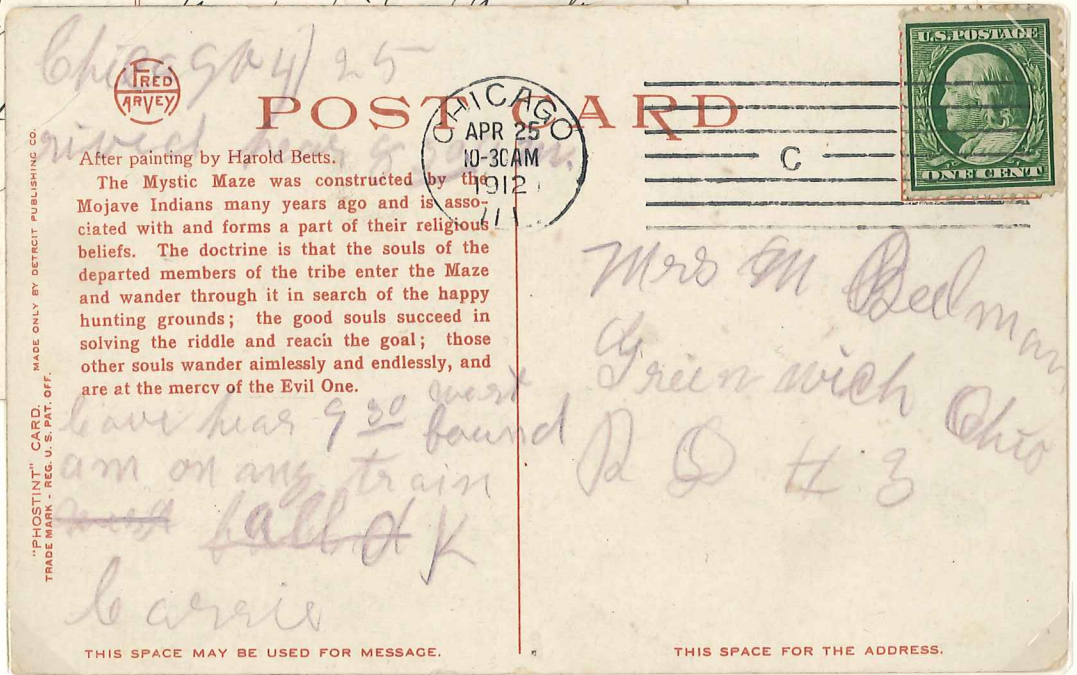 Chicago 4/25
FRED
HARVEY
POST CARD
CHICAGO
APR 25
10-30AM
1912
ILL
C
U.S. POSTAGE
ONE CENT
rived hear
After painting by Harold Betts.
The Mystic Maze was constructed by the
Mojave Indians many years ago and is asso-
ciated with and forms a part of their religious
beliefs. The doctrine is that the souls of the
departed members of the tribe enter the Maze
and wander through it in search of the happy
hunting grounds; the good souls succeed in
solving the riddle and reach the goal; those
other souls wander aimlessly and endlessly, and
are at the mercy of the Evil One.
leave hear 9 30 west
bound
am on any train
all O K
Carrie
THIS SPACE MAY BE USED FOR MESSAGE.
"PHOSTINT" CARD. MADE ONLY BY DETROIT PUBLISHING CO.
TRADE MARK - REG. U. S. PAT. OFF.
Mrs M
Greenwich
Ohio
R D # 3
THIS SPACE FOR THE ADDRESS.